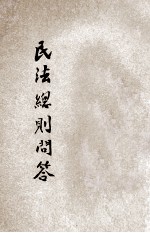 民法總則問答